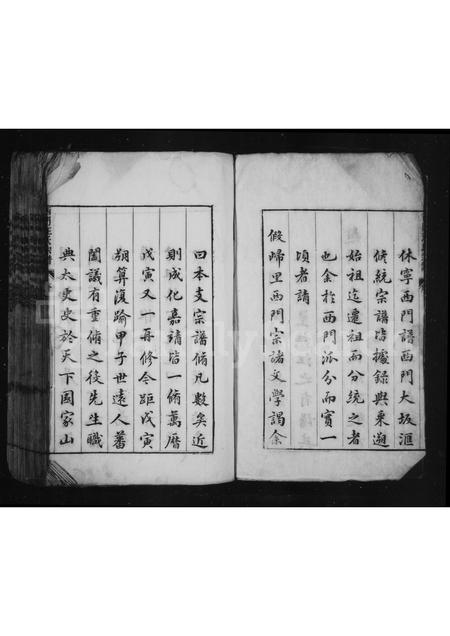 休寧西門譜西門大坂滙
脩統宗譜皆據錄與栗溯
始祖迄遷祖而分统之者
也余於西門派分而實一
頃者請
假歸里西門宗諸文學謁余
曰本支宗譜脩凡數矣近
則成化嘉靖皆一脩萬曆
戊寅又一再修今距戊寅
朔算復踰甲子世遠人蕃
闔議有重脩之役先生職
典太史史於天下國家山